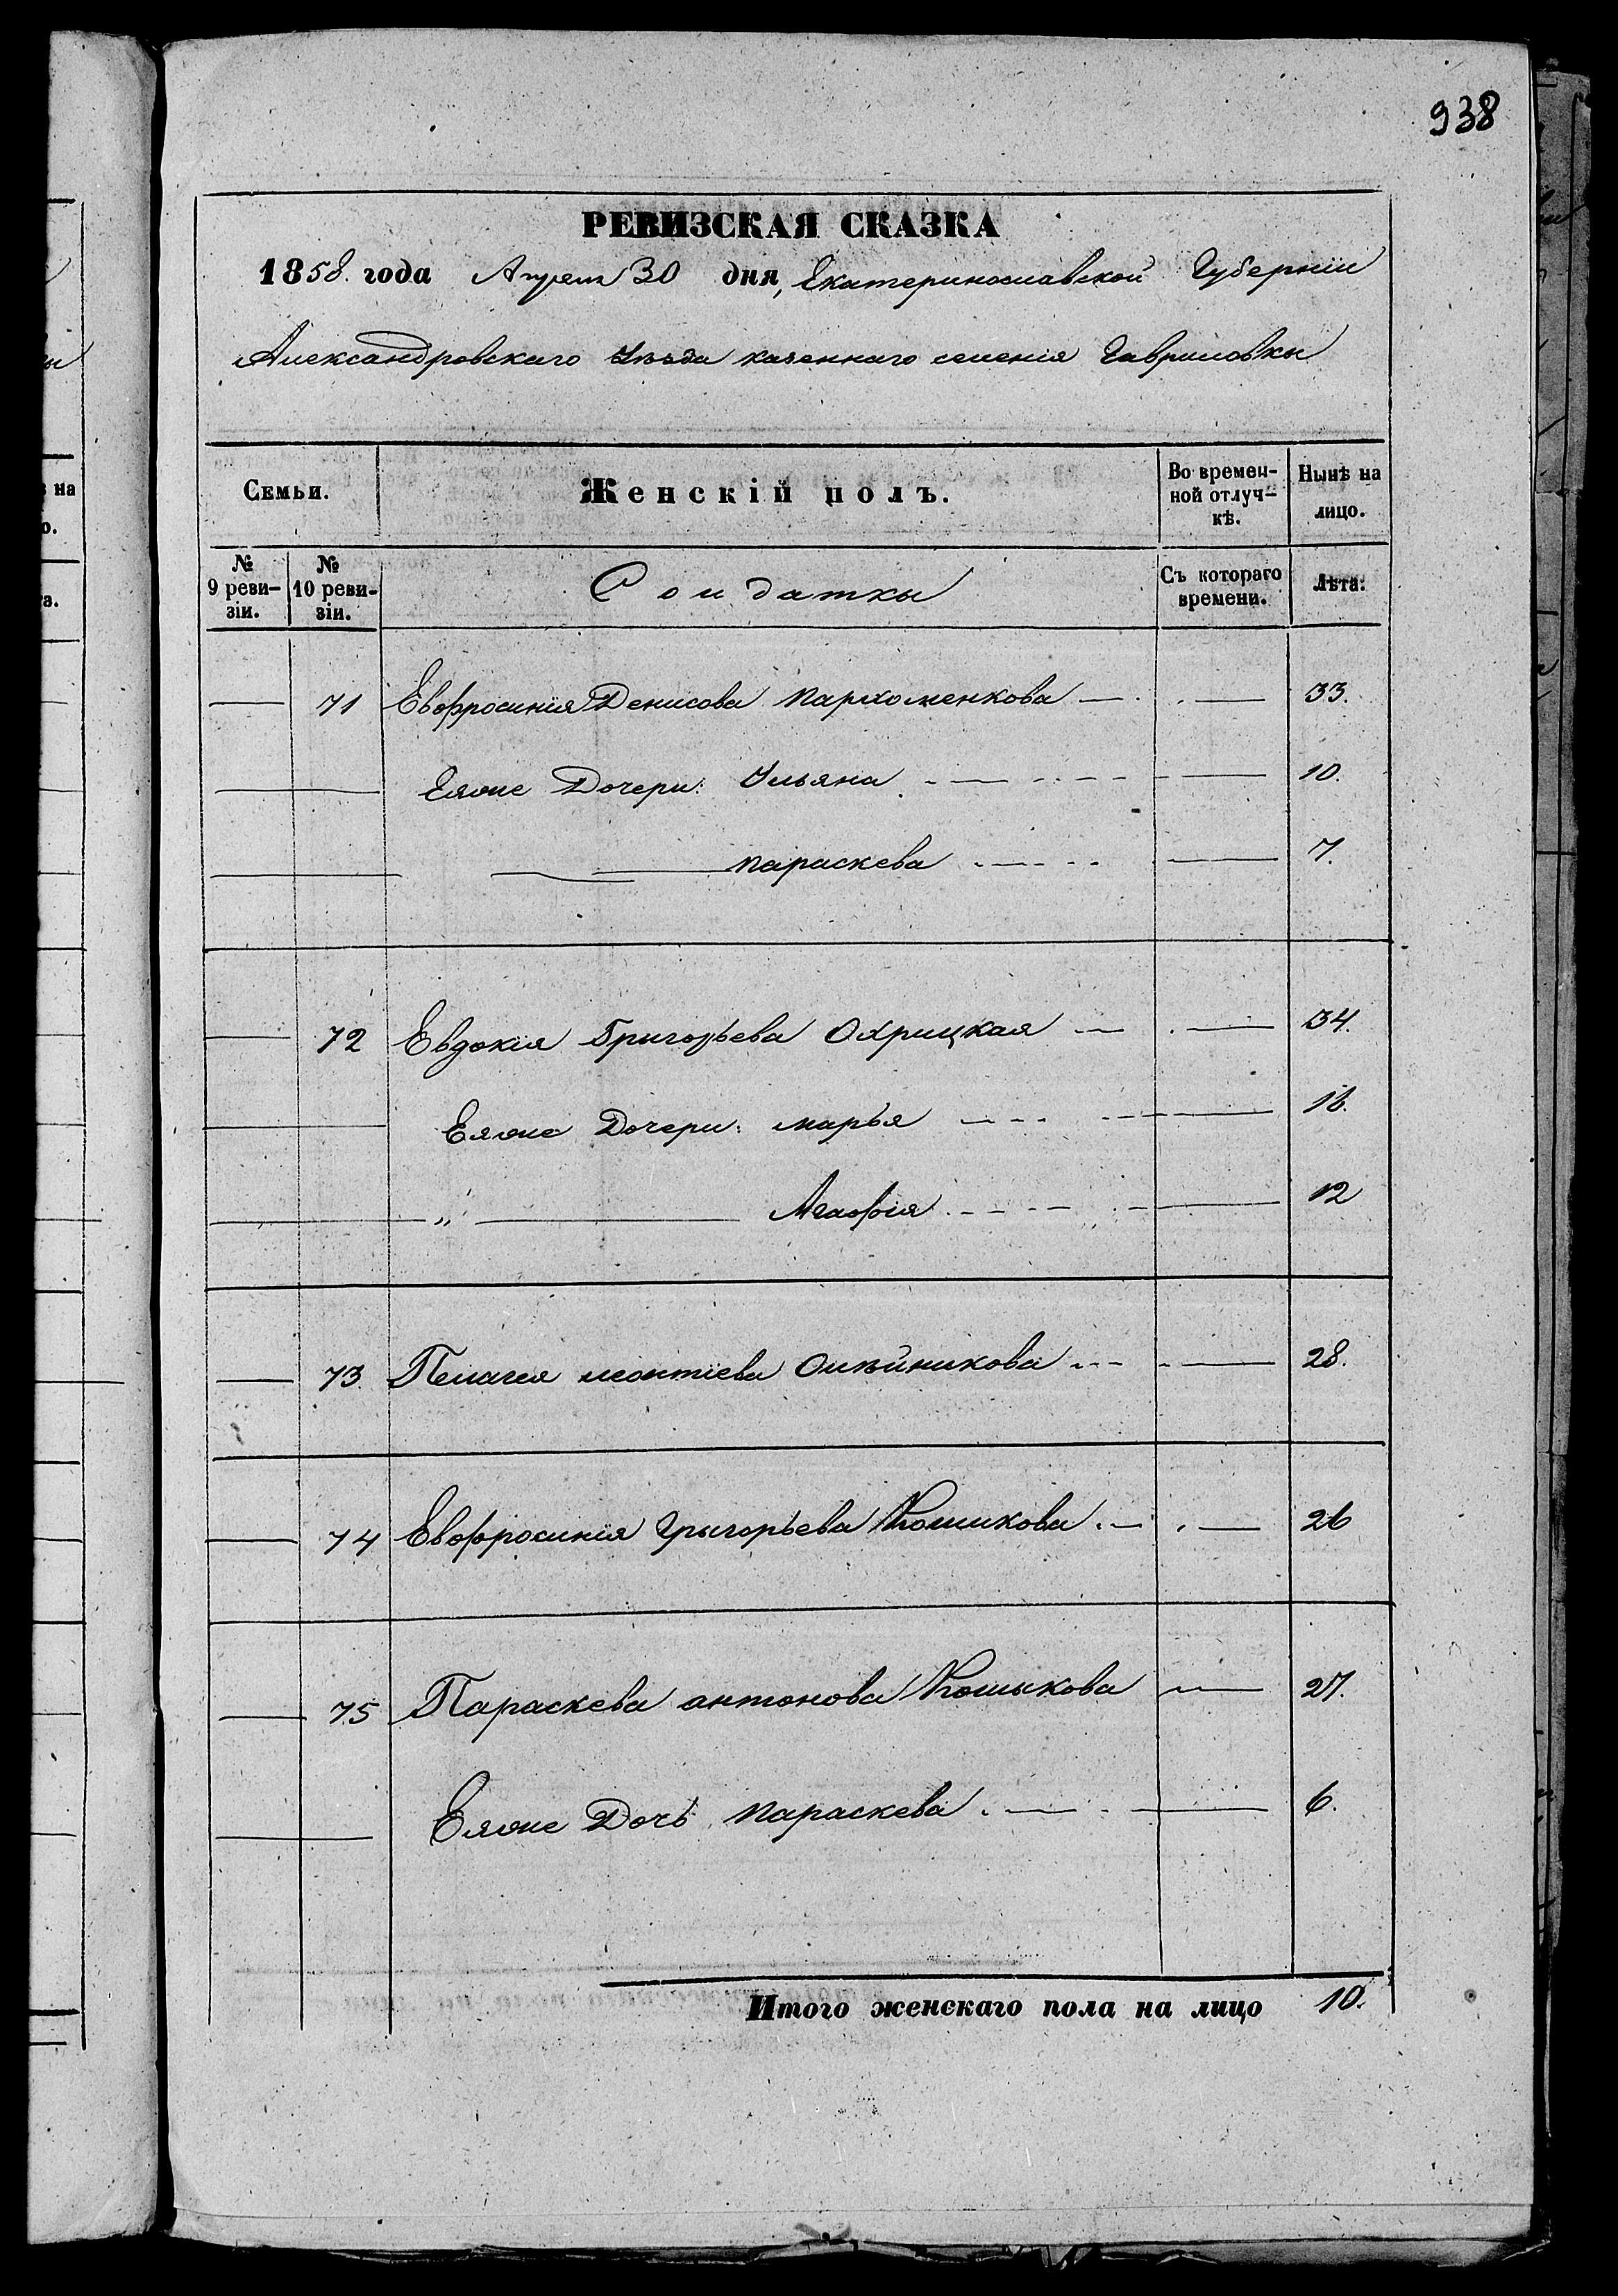 938
РЕВИЗСКАЯ СКАЗКА
1858. года Апреля 30 дня, Екатеринославской Губерніи
Александровскаго Уѣзда казеннаго селенія Гавриловки
Семьи. Женскій полъ. Во времен-
ной отлуч-
кѣ. Нынѣ на
лицо.
№
9 реви-
зіи. №
10 реви-
зіи. Солдатки Съ котораго
времени. Лѣта.
71 Евфросинія Денисова Пархоменкова 33.
Еяже Дочери: Ульяна 10.
Параскева 7.
72 Евдокія Григорьева Охрицкая 34.
Еяже Дочери: Марья 16.
" Агафія 12
73. Пелагея Леонтіева Олѣйникова 28.
74 Евфросинія Григорьева 26
75 Параскева Антонова 27.
Еяже Дочь Параскева 6.
Итого женскаго пола на лицо 10.
на